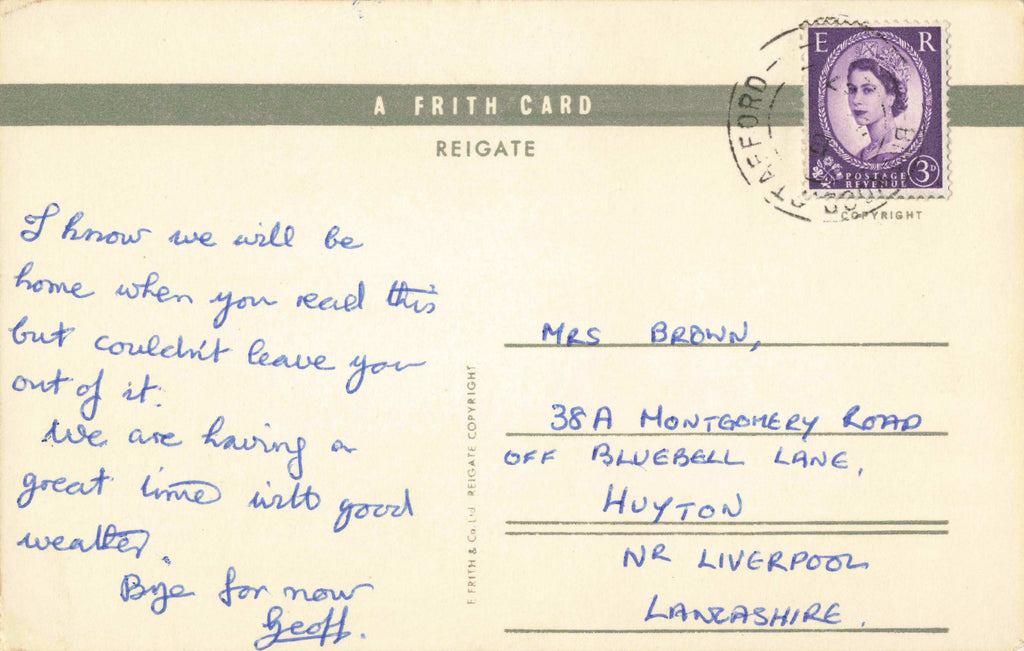 A FRITH CARD
REIGATE
E R
POSTAGE
REVENUE
3D
STAFFORD
COPYRIGHT
I know we will be
home when you read this
but couldn't leave you
out of it.
We are having a
great time with good
weather.
Bye for now
Geoff.
F. FRITH & Co. Ltd REIGATE COPYRIGHT
MRS BROWN,
38A MONTGOMERY ROAD
OFF BLUEBELL LANE,
HUYTON
NR LIVERPOOL
LANCASHIRE.